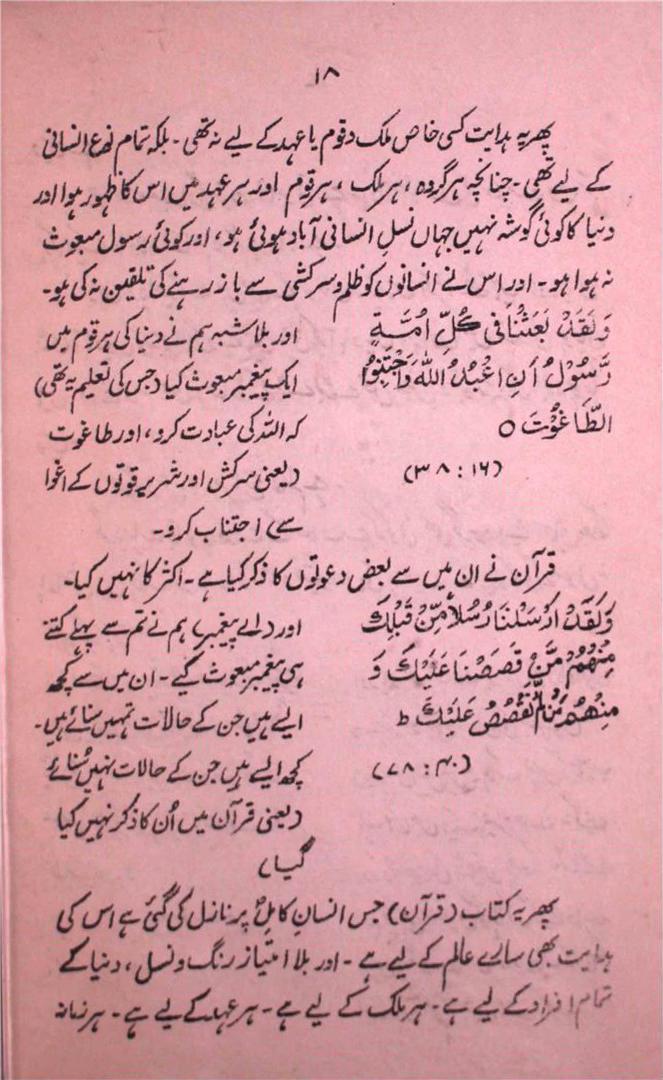 ۱۸
پھر یہ ہدایت کسی خاص ملک و قوم یا عہد کے لیے نہ تھی ۔ بلکہ تمام نوع انسانی
کے لیے تھی ۔ چنانچہ ہر گروہ ، ہر ملک ، ہر قوم اور ہر عہد میں اس کا ظہور ہوا اور
دنیا کا کوئی گوشہ نہیں جہاں نسلِ انسانی آباد ہوئی ہو ، اور کوئی رسول مبعوث
نہ ہوا ہو ۔ اور اس نے انسانوں کو ظلم و سرکشی سے باز رہنے کی تلقین نہ کی ہو ۔
وَلَقَدْ بَعَثْنَا فِی کُلِّ اُمَّةٍ
رَّسُوْلًا اَنِ اعْبُدُ اللّٰهَ وَاجْتَنِبُوا
الطَّاغُوْتَ ○
(۱۶ : ۳۸)
اور بلا شبہ ہم نے دنیا کی ہر قوم میں
ایک پیغمبر مبعوث کیا (جس کی تعلیم یہ تھی)
کہ اللہ کی عبادت کرو ، اور طاغوت
(یعنی سرکش اور شریر قوتوں کے اغوا
سے) اجتناب کرو ۔
قرآن نے ان میں سے بعض دعوتوں کا ذکر کیا ہے ۔ اکثر کا نہیں کیا ۔
وَلَقَدْ اَرْسَلْنَا رُسُلًا مِّنْ قَبْلِكَ
مِنْهُمْ مَّنْ قَصَصْنَا عَلَيْكَ وَ
مِنْهُمْ مَّنْ لَّمْ نَقْصُصْ عَلَيْكَ ط
(۴۰ : ۷۸)
اور (اے پیغمبر) ہم نے تم سے پہلے کتنے
ہی پیغمبر مبعوث کیے ۔ ان میں سے کچھ
ایسے ہیں جن کے حالات تمہیں سنائے ہیں ۔
کچھ ایسے ہیں جن کے حالات نہیں سُنائے
(یعنی قرآن میں اُن کا ذکر نہیں کیا
گیا)
پھر یہ کتاب (قرآن) جس انسانِ کامل پر نازل کی گئی ہے اس کی
ہدایت بھی سارے عالم کے لیے ہے ۔ اور بلا امتیاز رنگ و نسل ، دنیا کے
تمام افراد کے لیے ہے ۔ ہر ملک کے لیے ہے ۔ ہر عہد کے لیے ہے ۔ ہر زمانہ